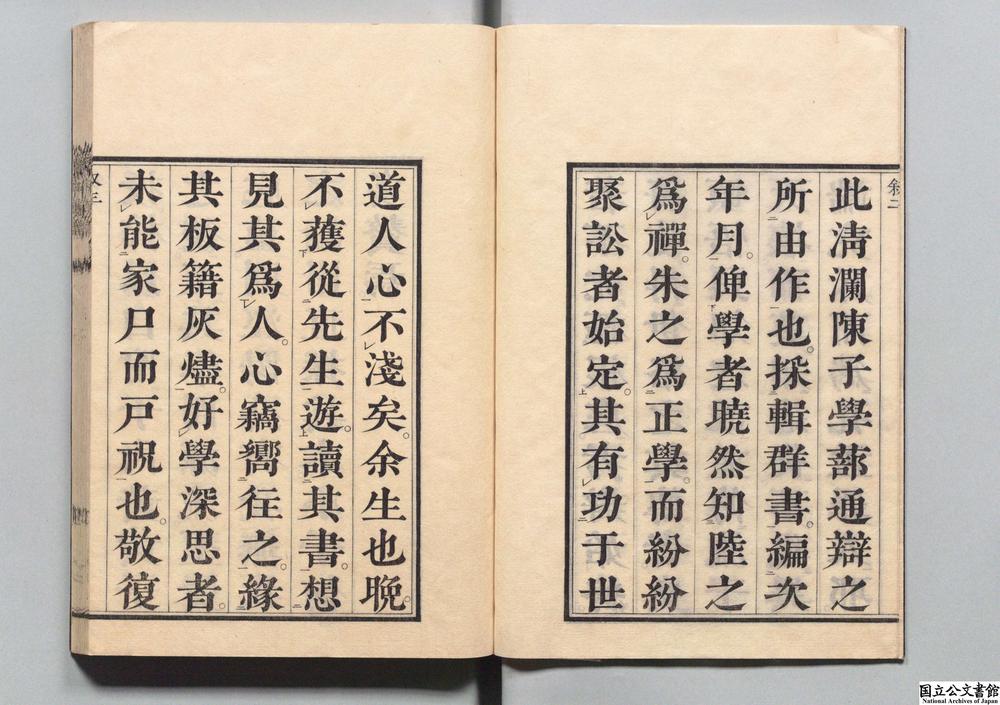 敘二
此淸瀾陳子學蔀通辯之
所由作也。採輯群書。編次
年月。俾學者曉然知陸之
爲禪。朱之爲正學。而紛紛
聚訟者始定。其有功于世
道人心不淺矣。余生也晚。
不獲從先生遊。讀其書。想
見其爲人。心竊嚮往之。緣
其板籍灰燼。好學深思者。
未能家尸而戸祝也。敬復
三
国立公文書館
National Archives of Japan